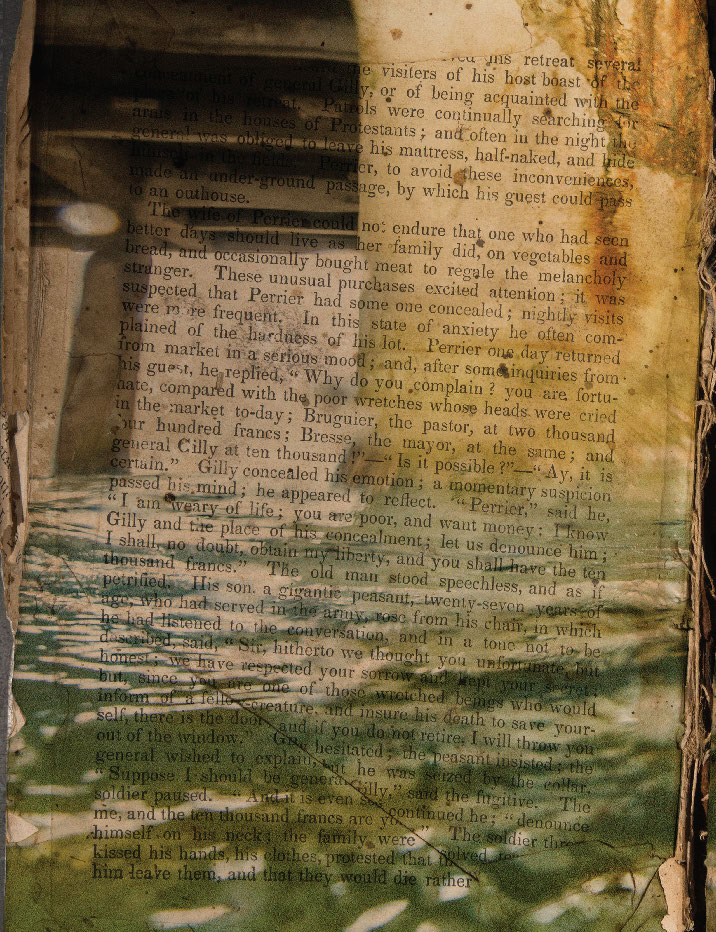 his retreat several
concealment of general Gilly, or of being acquainted with the
visiters of his host boast of the
his retreat. Patrols were continually searching for
arms in the houses of Protestants; and often in the night the
general was obliged to leave his mattress, half-naked, and hide
himself in the fields. Perrier, to avoid these inconveniences,
made an under-ground passage, by which his guest could pass
to an outhouse.
The wife of Perrier could not endure that one who had seen
better days should live as her family did, on vegetables and
bread, and occasionally bought meat to regale the melancholy
stranger. These unusual purchases excited attention; it was
suspected that Perrier had some one concealed; nightly visits
were more frequent. In this state of anxiety he often com-
plained of the hardness of his lot. Perrier one day returned
from market in a serious mood; and, after some inquiries from
his guest, he replied, “Why do you complain? you are fortu-
nate, compared with the poor wretches whose heads were cried
in the market to-day; Bruguier, the pastor, at two thousand
our hundred francs; Bresse, the mayor, at the same; and
general Gilly at ten thousand!”—“Is it possible?”—“Ay, it is
certain.” Gilly concealed his emotion; a momentary suspicion
passed his mind; he appeared to reflect. “Perrier,” said he,
“I am weary of life; you are poor, and want money: I know
Gilly and the place of his concealment; let us denounce him;
I shall, no doubt, obtain my liberty, and you shall have the ten
thousand francs.” The old man stood speechless, and as if
petrified. His son, a gigantic peasant, twenty-seven years of
age, who had served in the army, rose from his chair, in which
he had listened to the conversation, and in a tone not to be
described, said, “Sir, hitherto we thought you unfortunate, but
honest; we have respected your sorrow and kept your secret;
but, since you are one of those wretched beings who would
inform of a fellow-creature, and insure his death to save your-
self, there is the door, and if you do not retire, I will throw you
out of the window.” Gilly hesitated; the peasant insisted; the
general wished to explain, but he was seized by the collar.
“Suppose I should be general Gilly,” said the fugitive. The
soldier paused. “And it is even so,” continued he; “denounce
me, and the ten thousand francs are yo
himself on his neck; the family were” The soldier thr
kissed his hands, his clothes, protested that
him leave them, and that they would die rather